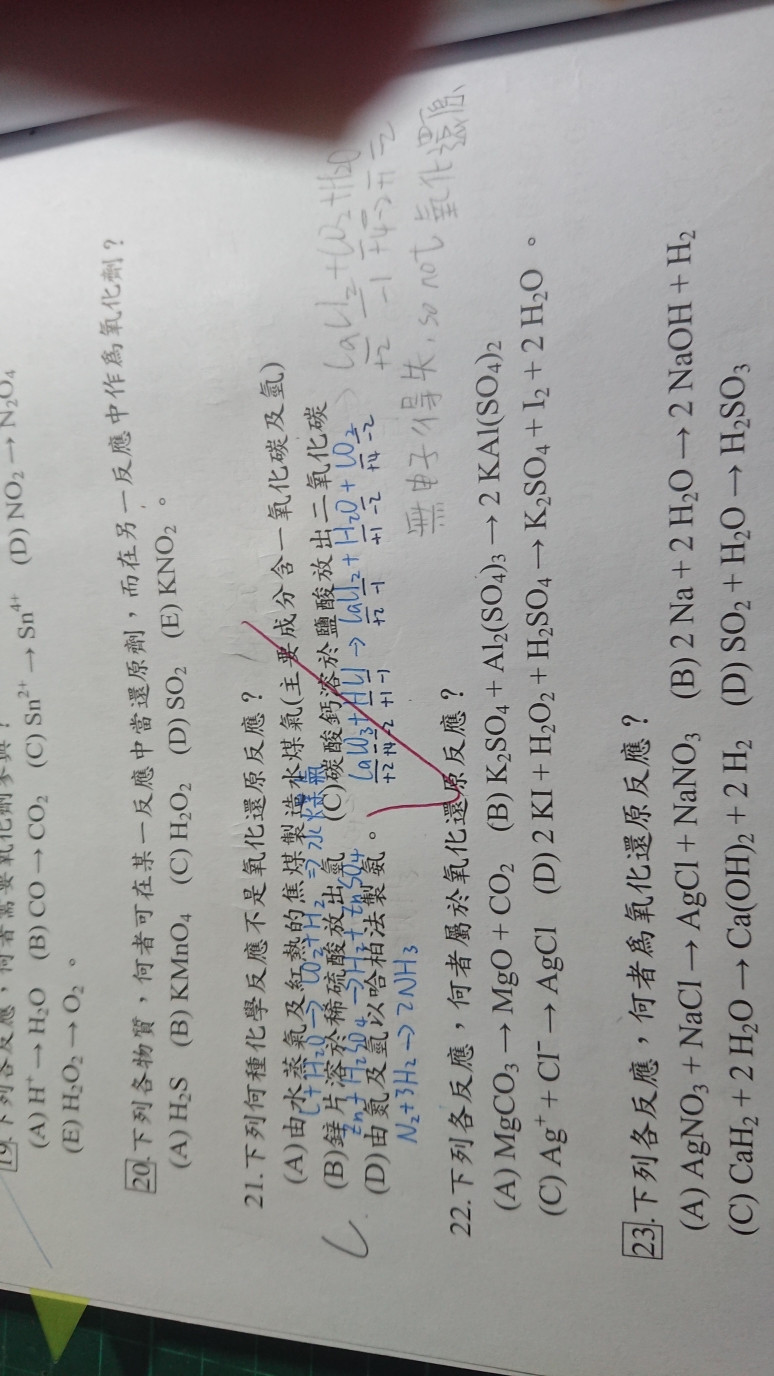 19.下列各反應，何者需要氧化劑參與？
(A) H⁺ → H₂O (B) CO → CO₂ (C) Sn²⁺ → Sn⁴⁺ (D) NO₂ → N₂O₄
(E) H₂O₂ → O₂。
20.下列各物質，何者可在某一反應中當還原劑，而在另一反應中作為氧化劑？
(A) H₂S (B) KMnO₄ (C) H₂O₂ (D) SO₂ (E) KNO₂。
21.下列何種化學反應不是氧化還原反應？
(A)由水蒸氣及紅熱的焦煤製造水煤氣(主要成分含一氧化碳及氫)
C+H₂O → CO+H₂ ⇒ 水煤氣
(B)鋅片溶於稀硫酸放出氫 (C)碳酸鈣溶於鹽酸放出二氧化碳
Zn+H₂SO₄ → H₂+ZnSO₄ CaCO₃+HCl → CaCl₂+H₂O+CO₂
+2 +4 -2 +1 -1 +2 -1 +1 -2 +4 -2
→ CaCl₂+CO₂+H₂O
+2 -1 +4 -2 +1 -2
(D)由氮及氫以哈柏法製氨。
N₂+3H₂ → 2NH₃
無電子得失, so not 氧化還原
C
22.下列各反應，何者屬於氧化還原反應？
(A) MgCO₃ → MgO + CO₂ (B) K₂SO₄ + Al₂(SO₄)₃ → 2 KAl(SO₄)₂
(C) Ag⁺ + Cl⁻ → AgCl (D) 2 KI + H₂O₂ + H₂SO₄ → K₂SO₄ + I₂ + 2 H₂O。
23.下列各反應，何者為氧化還原反應？
(A) AgNO₃ + NaCl → AgCl + NaNO₃ (B) 2 Na + 2 H₂O → 2 NaOH + H₂
(C) CaH₂ + 2 H₂O → Ca(OH)₂ + 2 H₂ (D) SO₂ + H₂O → H₂SO₃